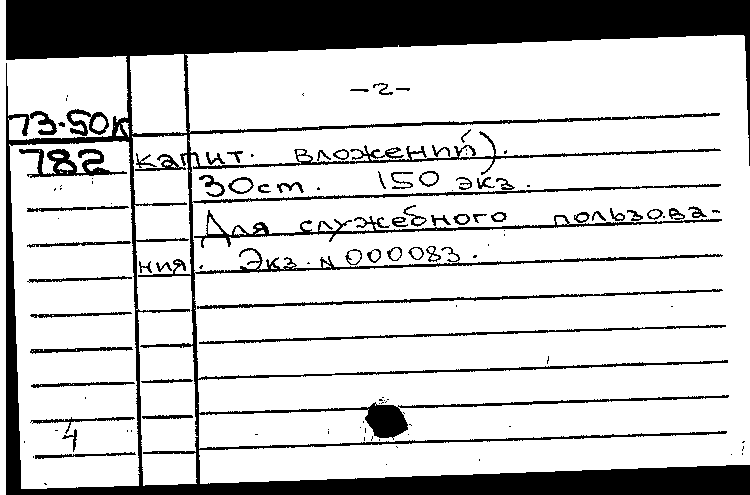 -2-
73.50к
782
капит. вложений).
30 ст. 150 экз.
Для служебного пользова-
ния. Экз. N 000083.
4